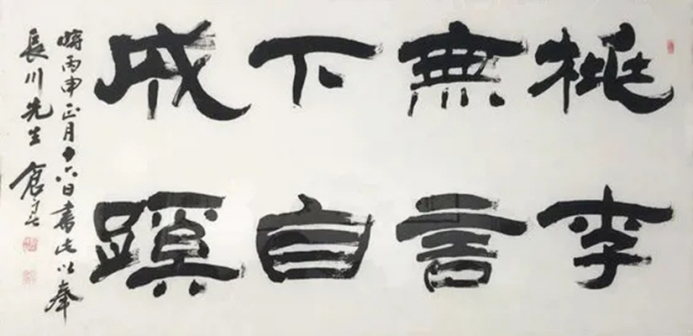 桃李
無言
下自
成蹊
時丙申正月十六日書此以奉
長川先生